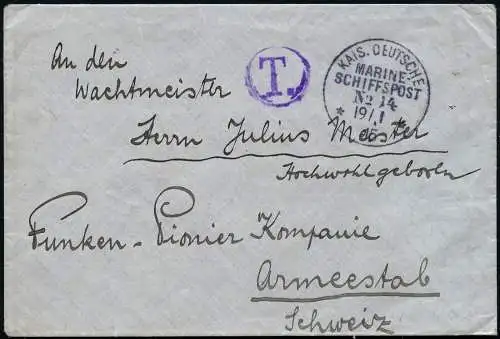 An den
Wachtmeister
T.
KAIS. DEUTSCHE
MARINE-
SCHIFFSPOST
No 14
19/1
15
Herrn Julius Meister
Hochwohlgeboren
Funken-Pionier Kompanie
Armeestab
Schweiz